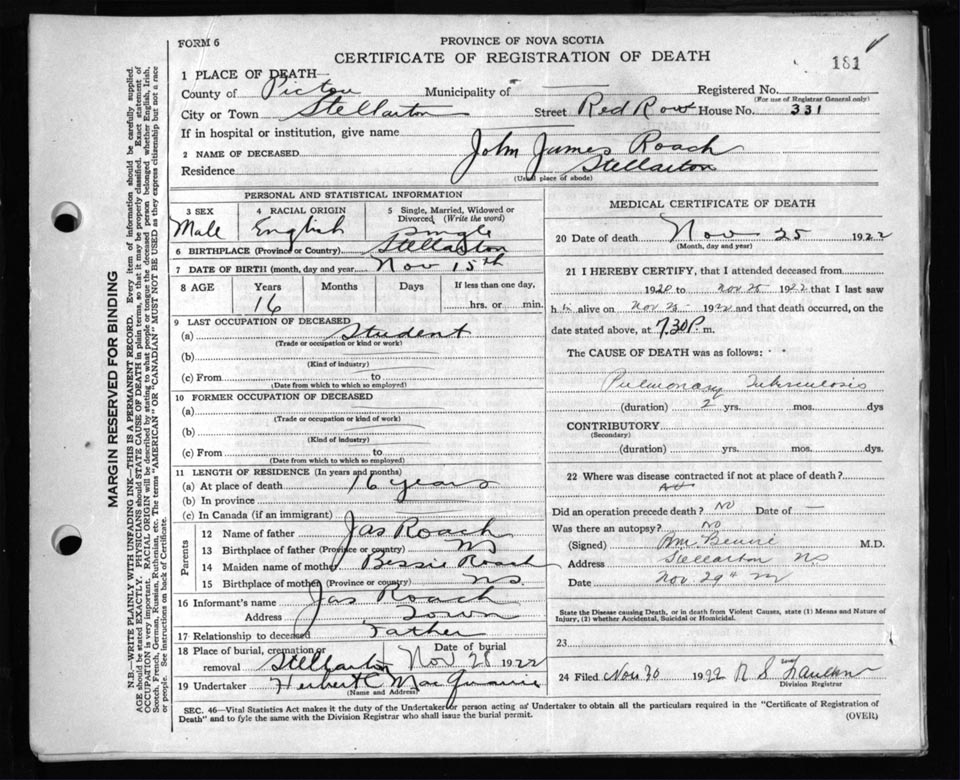 FORM 6
PROVINCE OF NOVA SCOTIA
CERTIFICATE OF REGISTRATION OF DEATH
181
1 PLACE OF DEATH—
County of Pictou Municipality of — Registered No.
(For use of Registrar General only)
City or Town Stellarton Street Red Row House No. 331
If in hospital or institution, give name
2 NAME OF DECEASED John James Roach
Residence Stellarton
(Usual place of abode)
MARGIN RESERVED FOR BINDING
N.B.—WRITE PLAINLY WITH UNFADING INK—THIS IS A PERMANENT RECORD. Every item of information should be carefully supplied.
AGE should be stated EXACTLY. PHYSICIANS should STATE CAUSE OF DEATH in plain terms, so that it may be properly classified. Exact statement of
OCCUPATION is very important. RACIAL ORIGIN will be described by stating to what people or tongue the deceased person belonged whether English, Irish,
Scotch, French, German, Russian, Ruthenian, etc. The terms "AMERICAN" OR "CANADIAN" MUST NOT BE USED as they express citizenship but not a race
or people. See instructions on back of Certificate.
PERSONAL AND STATISTICAL INFORMATION
3 SEX
Male
4 RACIAL ORIGIN
English
5 Single, Married, Widowed or
Divorced (Write the word)
Single
6 BIRTHPLACE (Province or Country) Stellarton
7 DATE OF BIRTH (month, day and year) Nov 15th
8 AGE Years Months Days If less than one day,
16 hrs. or min.
9 LAST OCCUPATION OF DECEASED
(a) Student
(Trade or occupation or kind or work)
(b)
(Kind of industry)
(c) From to
(Date from which to which so employed)
10 FORMER OCCUPATION OF DECEASED
(a)
(Trade or occupation or kind of work)
(b)
(Kind of industry)
(c) From to
(Date from which to which so employed)
11 LENGTH OF RESIDENCE (In years and months)
(a) At place of death 16 years
(b) In province
(c) In Canada (if an immigrant)
Parents
12 Name of father Jas Roach
13 Birthplace of father (Province or country) NS
14 Maiden name of mother Bessie Roach
15 Birthplace of mother (Province or country) NS.
16 Informant's name Jas Roach
Address Town
17 Relationship to deceased Father
18 Place of burial, cremation or Date of burial
removal Stellarton Nov 28 1922
19 Undertaker Herbert C
(Name and Address)
MEDICAL CERTIFICATE OF DEATH
20 Date of death Nov 25 1922
(Month, day and year)
21 I HEREBY CERTIFY, that I attended deceased from
1920 to Nov 25 1922 that I last saw
h im alive on Nov 25 1922 and that death occurred, on the
date stated above, at 7.30 P. m.
The CAUSE OF DEATH was as follows:
Pulmonary Tuberculosis
(duration) 2 yrs. mos. dys
CONTRIBUTORY
(Secondary)
(duration) yrs. mos. dys
22 Where was disease contracted if not at place of death?
Did an operation precede death? No Date of —
Was there an autopsy? No
(Signed) M.D.
Address Stellarton NS
Date Nov. 29th
State the Disease causing Death, or in death from Violent Causes, state (1) Means and Nature of
Injury, (2) whether Accidental, Suicidal or Homicidal.
23
24 Filed Nov 30 1922 R S
Division Registrar
SEC. 46—Vital Statistics Act makes it the duty of the Undertaker or person acting as Undertaker to obtain all the particulars required in the "Certificate of Registration of
Death" and to fyle the same with the Division Registrar who shall issue the burial permit.
(OVER)